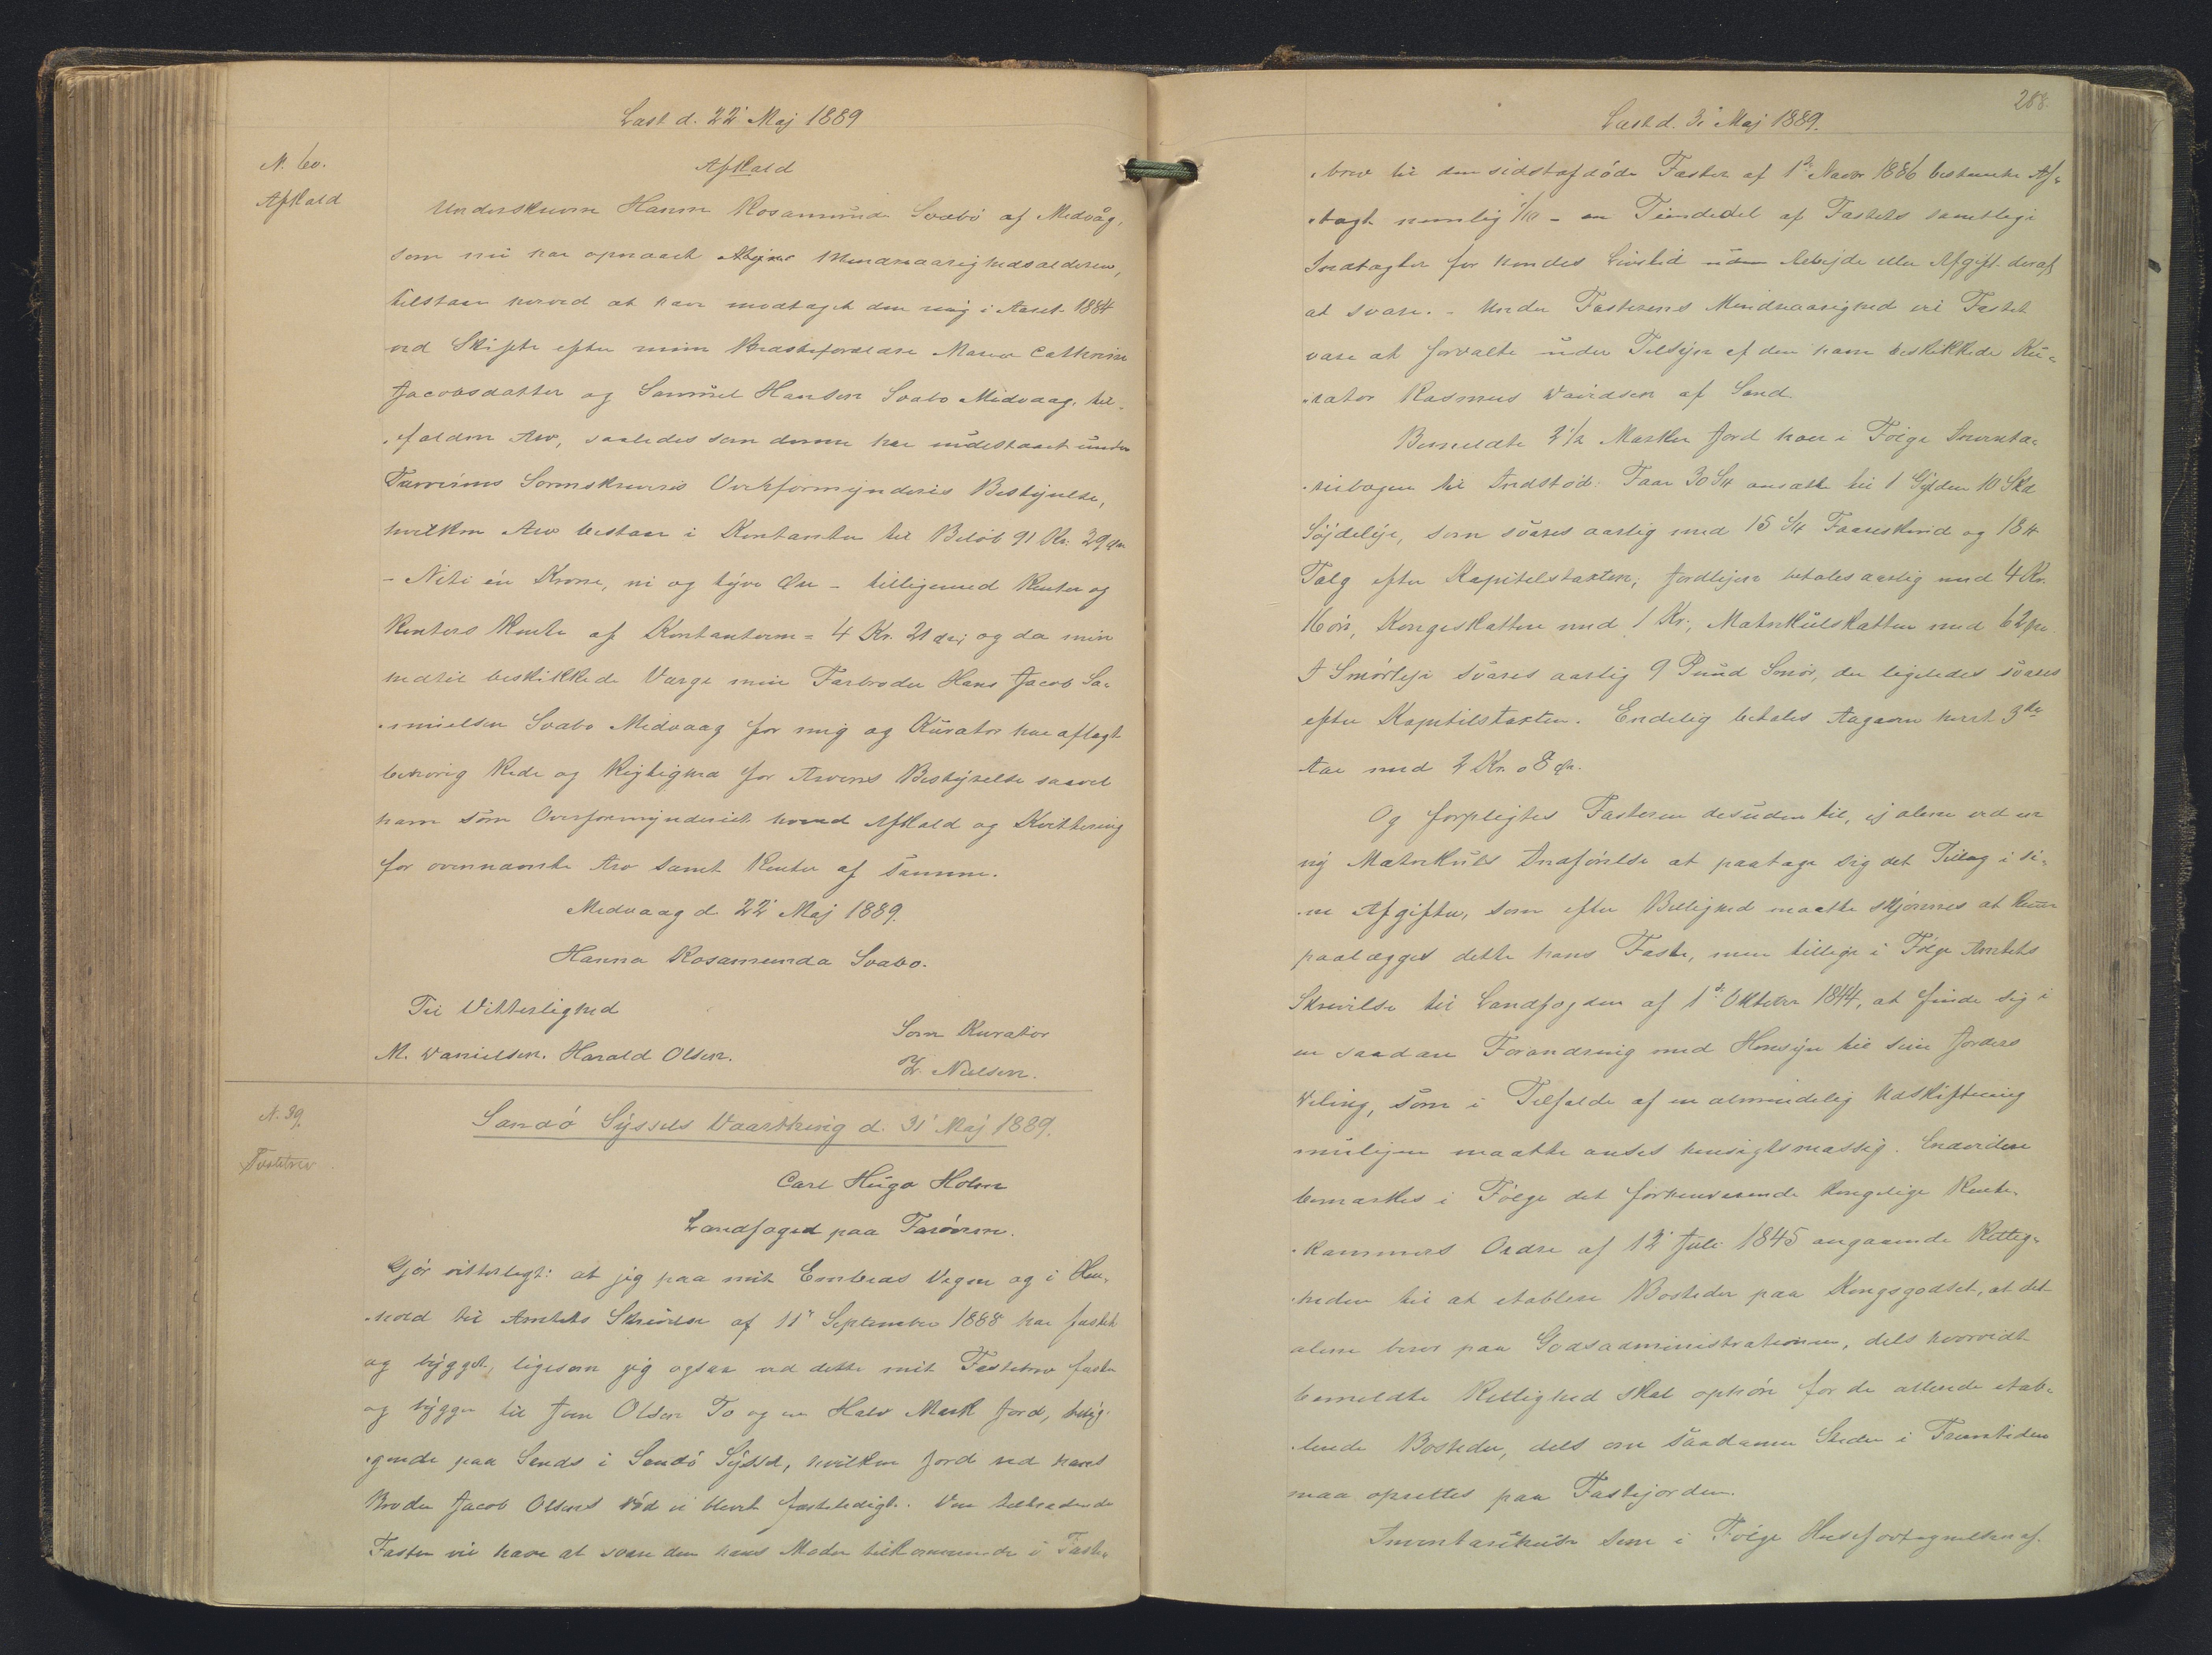 Læst d. 22' Maj 1889
N. 60.
Afkald
Afkald
Underskrevne Hanna Rosamunda Svabo af Midvåg,
som nu har opnaaet Mindreaarighedsalderen,
tilstaar herved at have modtaget den mig i Aaret 1884
ved Skifte efter mine Bedsteforældre Maren Cathrine
Jacobsdatter og Samuel Hansen Svabo Midvaag, til-
falden Arv, saaledes som denne har indestaaet under
Færøernes Sorenskriveris Overformynderis Bestyrelse,
hvilken Arv bestaar i Kontanter til Beløb 91 Kr. 29 Ør
- Niti én Krone, ni og tyve Øre - tilligemed Renter og
Renters Rente af Kontanterne = 4 Kr. 21 Ør; og da min
dertil beskikkede Værge min Farbroder Hans Jacob Sa-
muelsen Svabo Midvaag for mig og Kurator har aflagt
behørig Rede og Rigtighed for Arvens Bestyrelse saavel
ham som Overformynderiet herved Afkald og Kvittering
for ovennævnte Arv samt Renter af samme.
Midvaag d. 22' Maj 1889.
Hanna Rosamunda Svabo.
Til Vitterlighed
M. Danielsen. Harald Olsen.
Som Kurator
Z. Nielsen.
N. 39.
Fæstebrev
Sandø Syssels Vaarthing d. 31' Maj 1889.
Carl Hugo Holm
Landfoged paa Færøerne.
Gjør vitterligt: at jeg paa mit Embeds Vegne og i Hen-
hold til Amtets Skrivelse af 11' September 1888 har fæstet
og bygget, ligesom jeg ogsaa ved dette mit Fæstebrev fæster
og bygger til Joen Olsen To og en Halv Mark Jord, belig-
gende paa Sands i Sandø Syssel, hvilken Jord ved hans
Broder Jacob Olsens Død er blevet fæsteledigt. Den tiltrædende
Fæster vil have at svare den hans Moder tilkommende i Fæste-
288.
Læst d. 31' Maj 1889.
brev til den sidstafdøde Fæster af 1' Novbr 1886 bestemte Af-
tægt nemlig 1/10 - en Tiendedel af Fæstets samtlige
Indtægter for hendes Livstid uden Arbejde eller Afgift deraf
at svare. - Under Fæsterens Mindreaarighed vil Fæstet
være at forvalte under Tilsyn af den ham beskikkede Ku-
rator Rasmus Davidsen af Sand.
Bemeldte 2 1/2 Marker Jord har i Følge Inventa-
riebogen til Indstød: Faar 30 St ansatte til 1 Gylden 10 Skd
Søjdeleje, som svares aarlig med 15 St Faareskind og 18 ℔
Talg efter Kapitelstaxten; Jordlejen betales aarlig med 4 Kr.
16 Ør, Kongeskatten med 1 Kr., Matrikulskatten med 62 Ør.
I Smørleje svares aarlig 9 Pund Smør, der ligeledes svares
efter Kapitelstaxten. Endelig betales Aagaven hvert 3die
Aar med 2 Kr. 08 Ør.
Og forpligtes Fæsteren desuden til, ej alene ved en
ny Matrikuls Indførelse at paatage sig det Tillæg i si-
ne Afgifter, som efter Billighed maatte skjønnes at kunne
paalægges dette hans Fæste, men tillige i Følge Amtets
Skrivelse til Landfogden af 1' Oktober 1844, at finde sig i
en saadan Forandring med Hensyn til sine Jorders
Deling, som i Tilfælde af en almindelig Udskiftning
muligen maatte anses hensigtsmæssig. Endvidere
bemærkes i Følge det forhenværende kongelige Rente-
kammers Ordre af 12' Juli 1845 angaaende Rettig-
heden til at etablere Bosteder paa Kongsgodset, at det
alene beror paa Godsadministrationen, dels hvorvidt
bemeldte Rettighed skal ophøre for de allerede etab-
lerede Bosteder, dels om saadanne Steder i Fremtiden
maa oprettes paa Fæstejorden.
Inventariehuse som i Følge Husefortegnelsen af